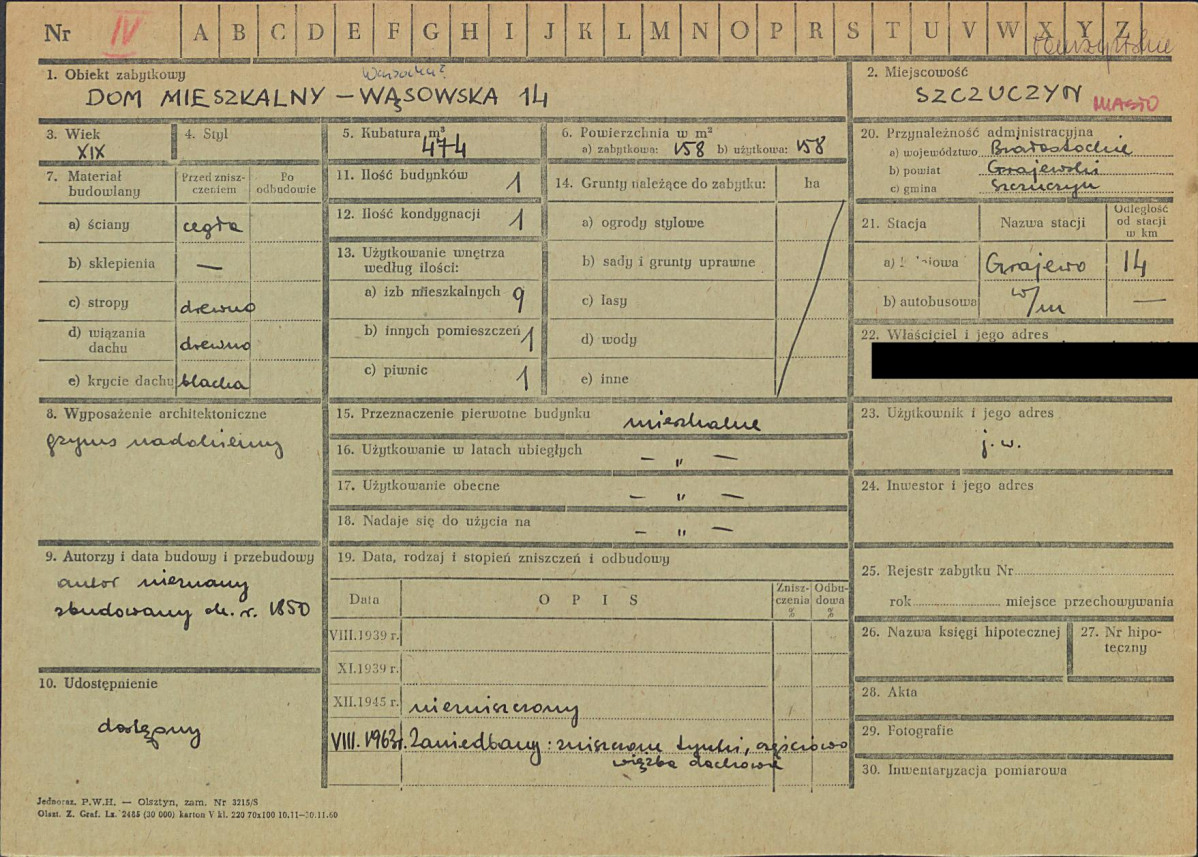 Nr IV A B C D E F G H I J K L M N O P R S T U V W X Y Z
1. Obiekt zabytkowy
DOM MIESZKALNY – WĄSOWSKA 14
2. Miejscowość
SZCZUCZYN MIASTO
3. Wiek
XIX
4. Styl
5. Kubatura m³
474
6. Powierzchnia w m²
a) zabytkowa: 158 b) użytkowa: 158
20. Przynależność administracyjna
a) województwo Białostockie
b) powiat Grajewski
c) gmina Szczuczyn
7. Materiał budowlany
Przed zniszczeniem
Po odbudowie
a) ściany cegła
b) sklepienia —
c) stropy drewno
d) wiązania dachu drewno
e) krycie dachu blacha
11. Ilość budynków 1
12. Ilość kondygnacji 1
13. Użytkowanie wnętrza
według ilości:
a) izb mieszkalnych 9
b) innych pomieszczeń 1
c) piwnic 1
14. Grunty należące do zabytku: ha
a) ogrody stylowe
b) sady i grunty uprawne
c) lasy
d) wody
e) inne
21. Stacja
Nazwa stacji
Odległość
od stacji
w km
a) Grajewo 14
b) autobusowa w/m —
22. Właściciel i jego adres
8. Wyposażenie architektoniczne
gzyms
15. Przeznaczenie pierwotne budynku mieszkalne
16. Użytkowanie w latach ubiegłych – „ –
17. Użytkowanie obecne – „ –
18. Nadaje się do użycia na – „ –
23. Użytkownik i jego adres
j.w.
24. Inwestor i jego adres
9. Autorzy i data budowy i przebudowy
autor nieznany
zbudowany ok. r. 1850
19. Data, rodzaj i stopień zniszczeń i odbudowy
Data
OPIS
Zniszczenia %
Odbudowa %
VIII.1939 r.
XI.1939 r.
XII.1945 r. niezniszczony
VIII. 1963 r. Zaniedbany: zniszczone tynki, częściowo
więźba dachowa
25. Rejestr zabytku Nr
rok miejsce przechowywania
26. Nazwa księgi hipotecznej
27. Nr hipoteczny
10. Udostępnienie
dostępny
28. Akta
29. Fotografie
30. Inwentaryzacja pomiarowa
Jednoraz. P.W.H. — Olsztyn, zam. Nr 3215/S
Olszt. Z. Graf. Lz. 2485 (30 000) karton V kl. 220 70x100 10.11-30.11.60